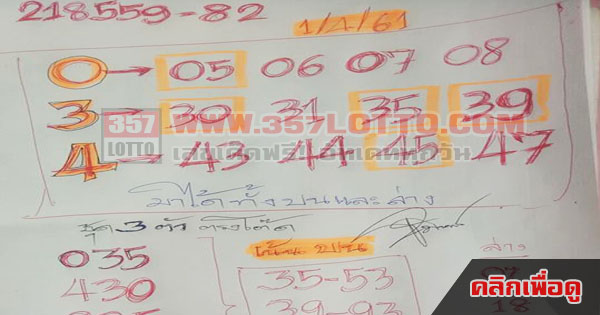 218559-82
1/4/61
0 → 05 06 07 08
3 - 30 31 35 39
357 LOTTO WWW.357LOTTO.COM
4 - 43 44 45 47
มาได้ทั้งบนและล่าง
ชุด 3 ตัว ตรงโต๊ด
เน้น บน
ล่าง
035
35-53
07
430
39-93
18
คลิกเพื่อดู